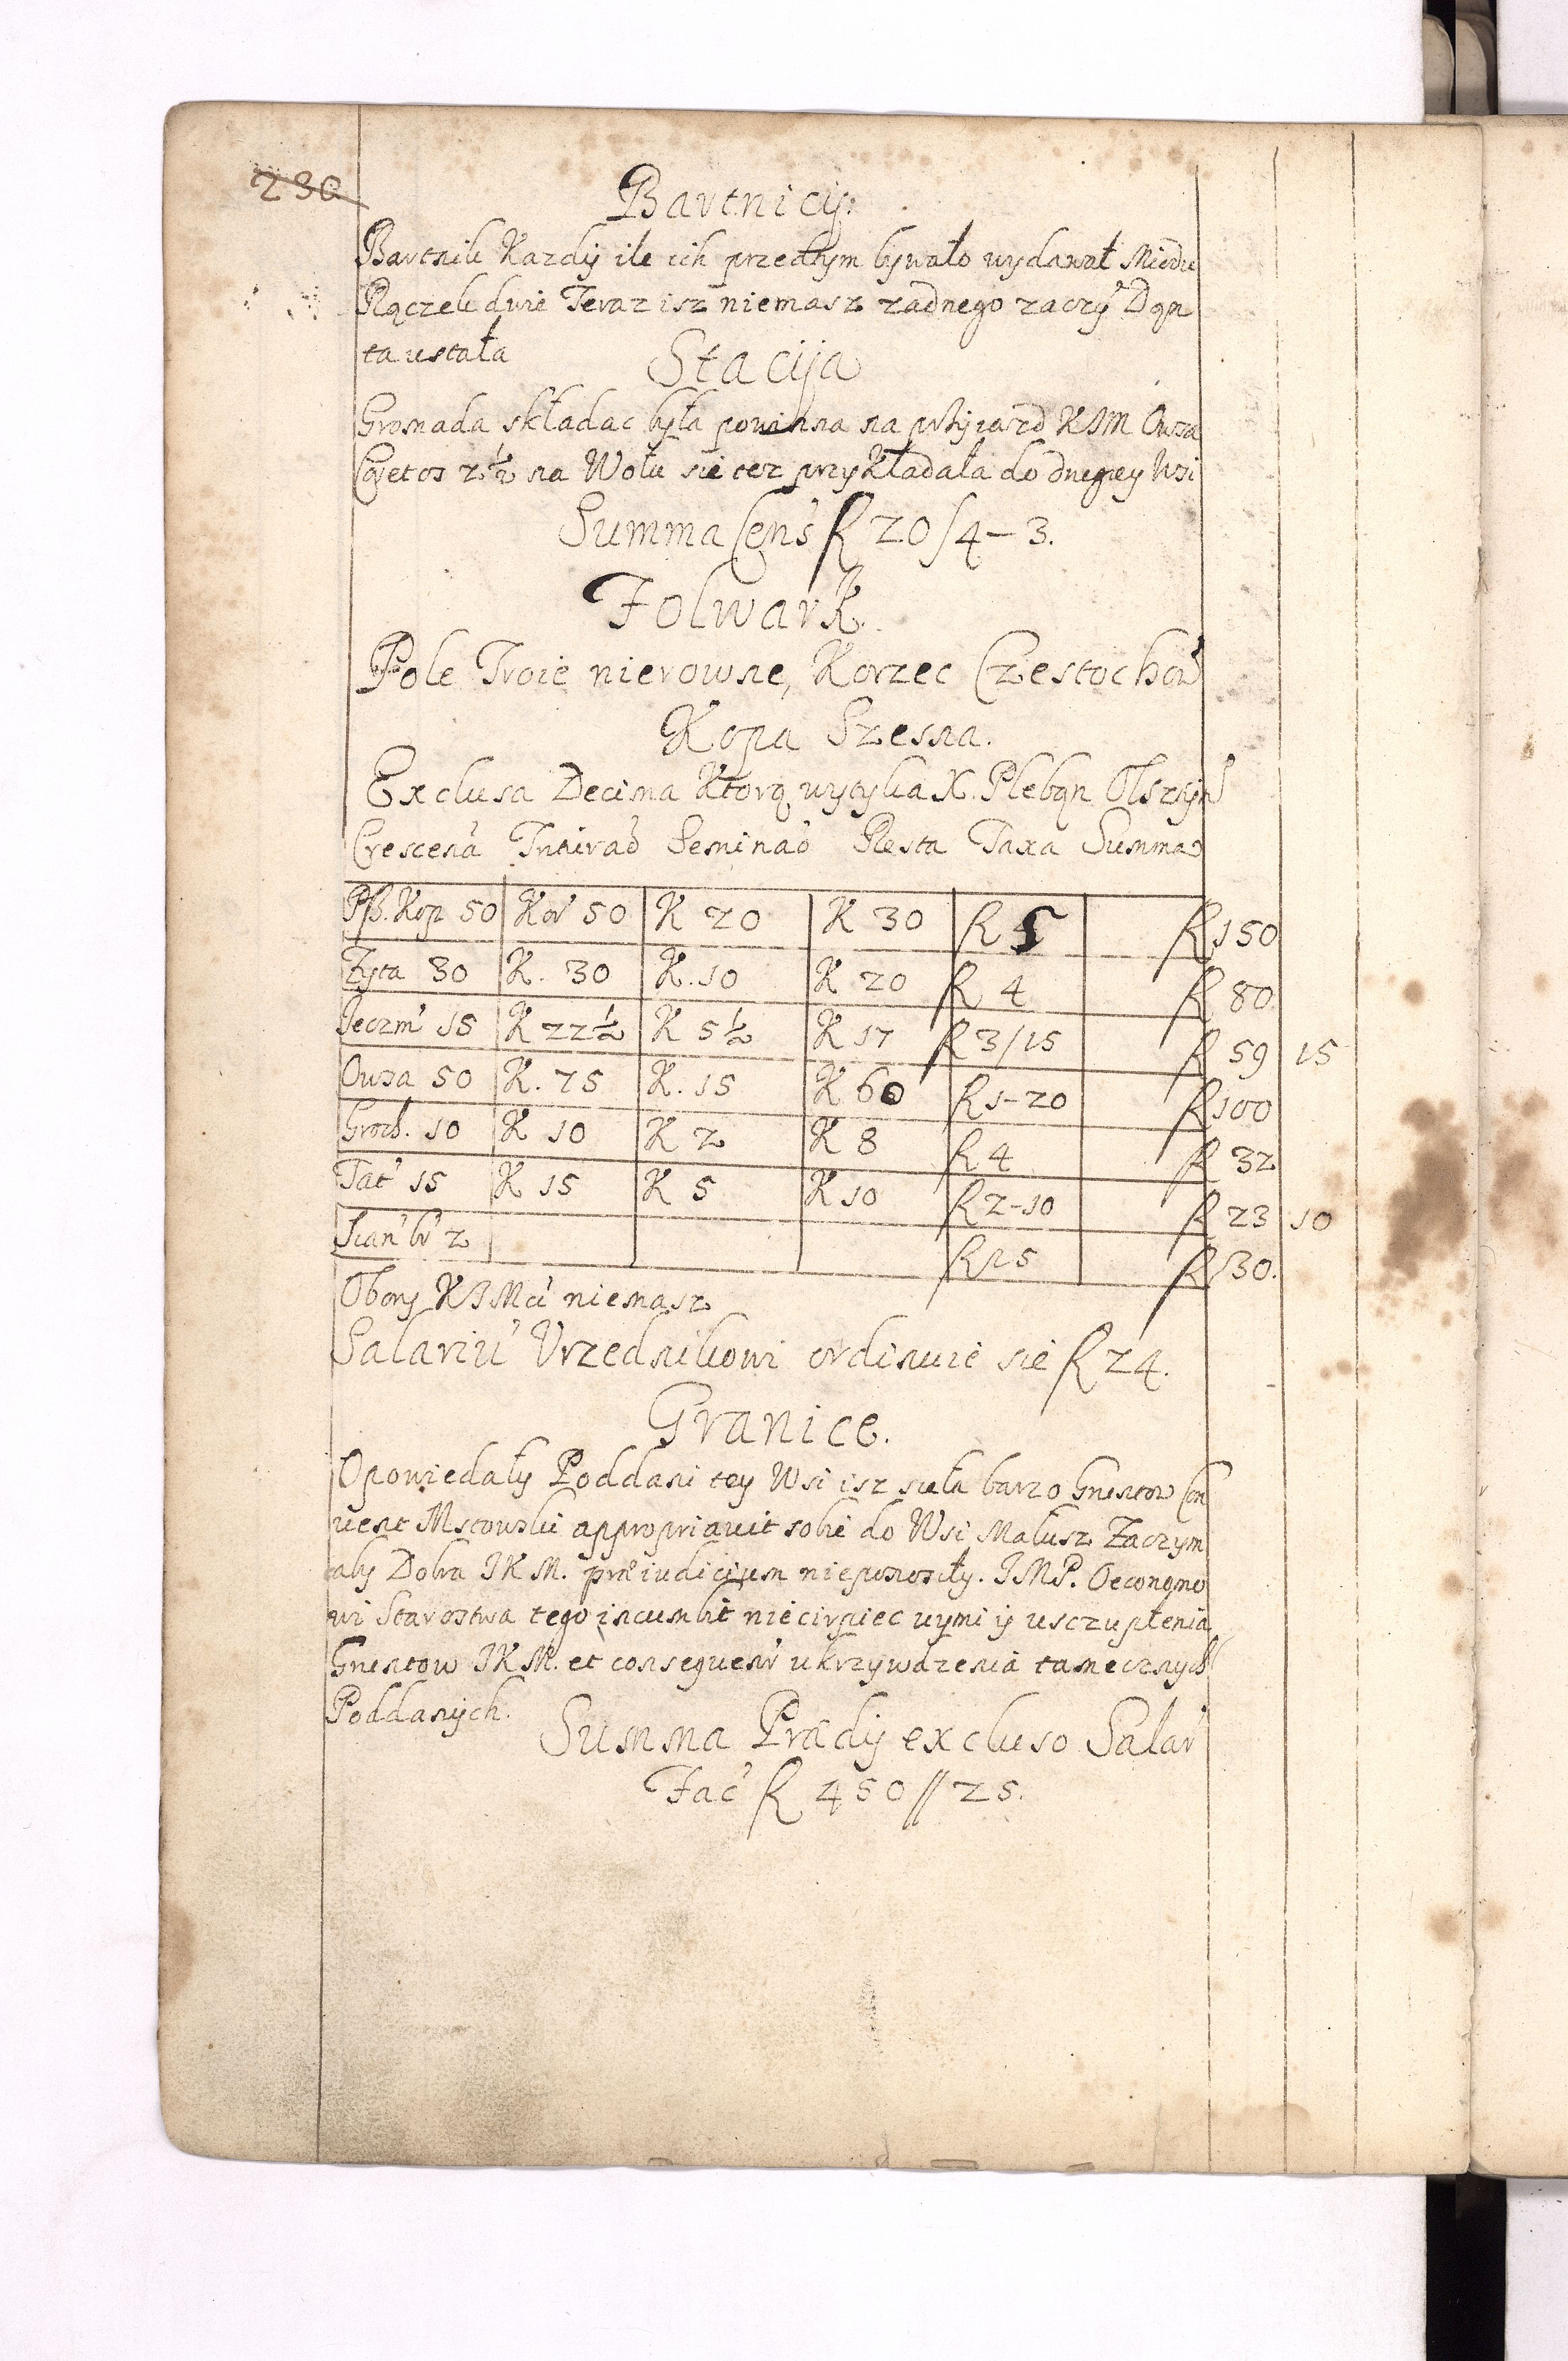 230
Bartnicÿ:
Bartnik Kazdÿ ile ich przedtym bywało wydawał Miodu
Rączek dwie Teraz isz niemasz zadnego zaczÿ Dan
ta ustała
Stacÿa
Gromada składac była powinna na przÿiazd KJM Owsa
Cvetos 2½ na Wołu sie tez przykładała do Wsi
Summa Cens R 20/4–3.
Folwark.
Pole Troie nierowne, Korzec Czestochow
Kopa Szesna.
Exclusa Decima Ktorą wytyka X. Pleban Olsztÿn
Crescen Triturao Seminao Resta Taxa Summa
Psz. Kop 50 Kor 50 K 20 K 30 R 5 R 150
Zyta 30 K. 30 K. 10 K 20 R 4 R 80
Jeczm 15 K 22½ K 5½ K 17 R 3/15 R 59 15
Owsa 50 K. 75 K. 15 K 60 R 1–20 R 100
Groch. 10 K 10 K 2 K 8 R 4 R 32
Tat 15 K 15 K 5 K 10 R 2–10 R 23 10
Sian br 2 R 15 R 30.
Obory KJMci niemasz
Salariu Vrzednikowi ordinuie sie R 24.
Granice.
Opowiedały Poddani tey Wsi isz siela barzo Gruntow Con
vent Mstowski appropriavit sobie do Wsi Malusz Zaczym
aby Dobra JKM. præiudicium nieponosiły. JMP. Oeconomo
wi Starostwa tego incumbit niecirpiec uymi ÿ usczuplenia
Gruntow JKM. et consequenr ukrzywdzenia tamecznych
Poddanÿch.
Summa Prædÿ excluso Salar
Fac R 450//25.